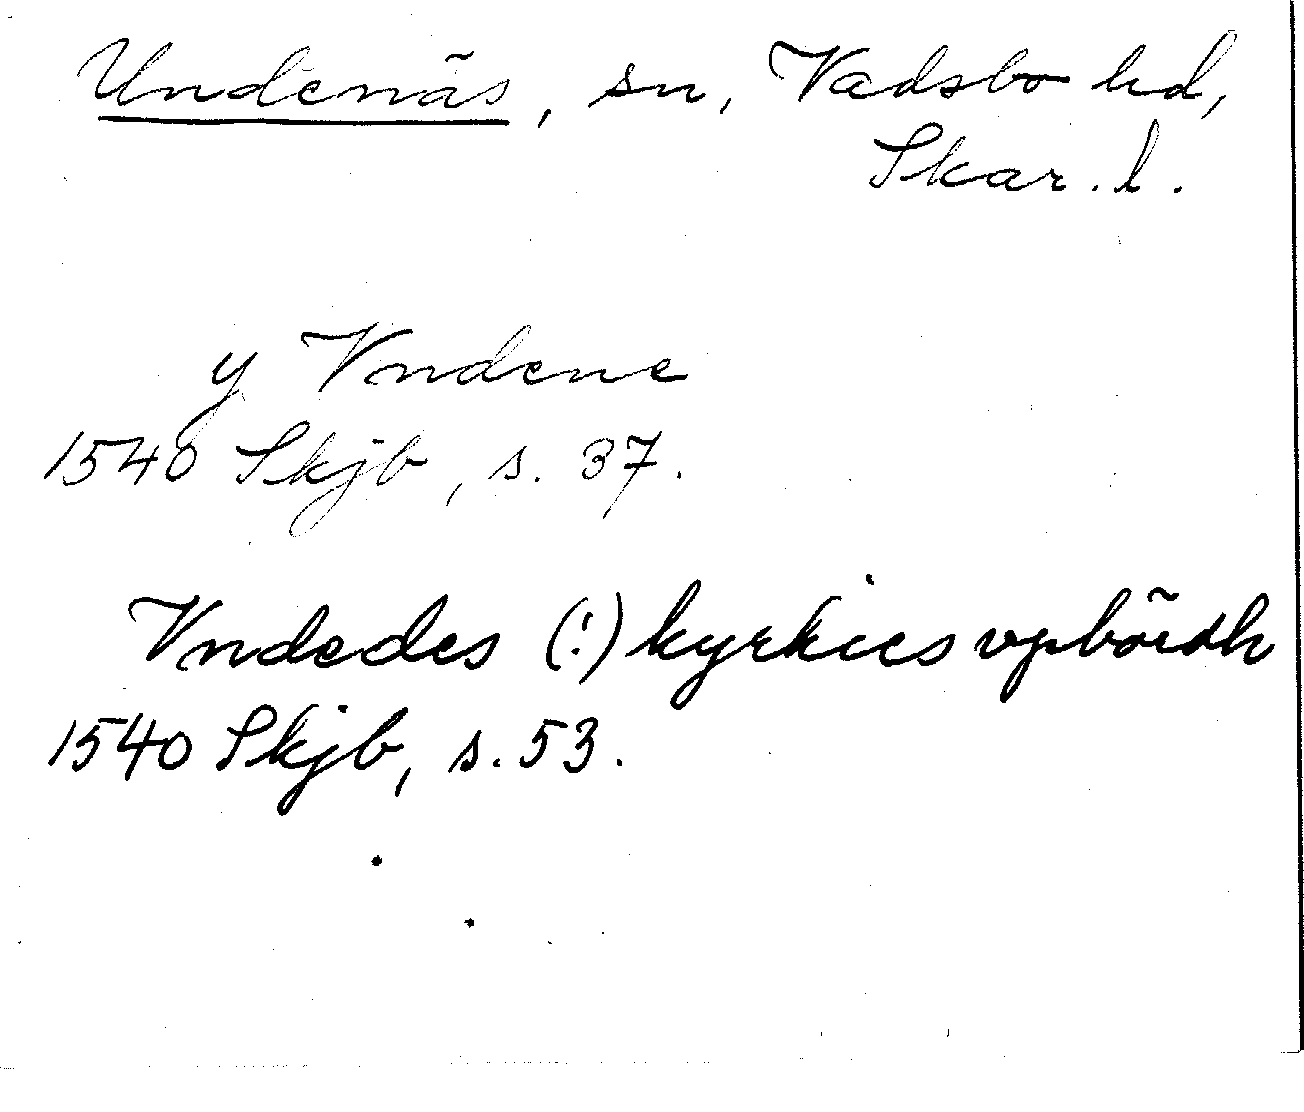 Undenäs, sn, Vadsbo hd,
Skar. l.
y Vndene
1540 Skjb, s. 37.
Vndedes (!) kyrkies vpbördh
1540 Skjb, s. 53.